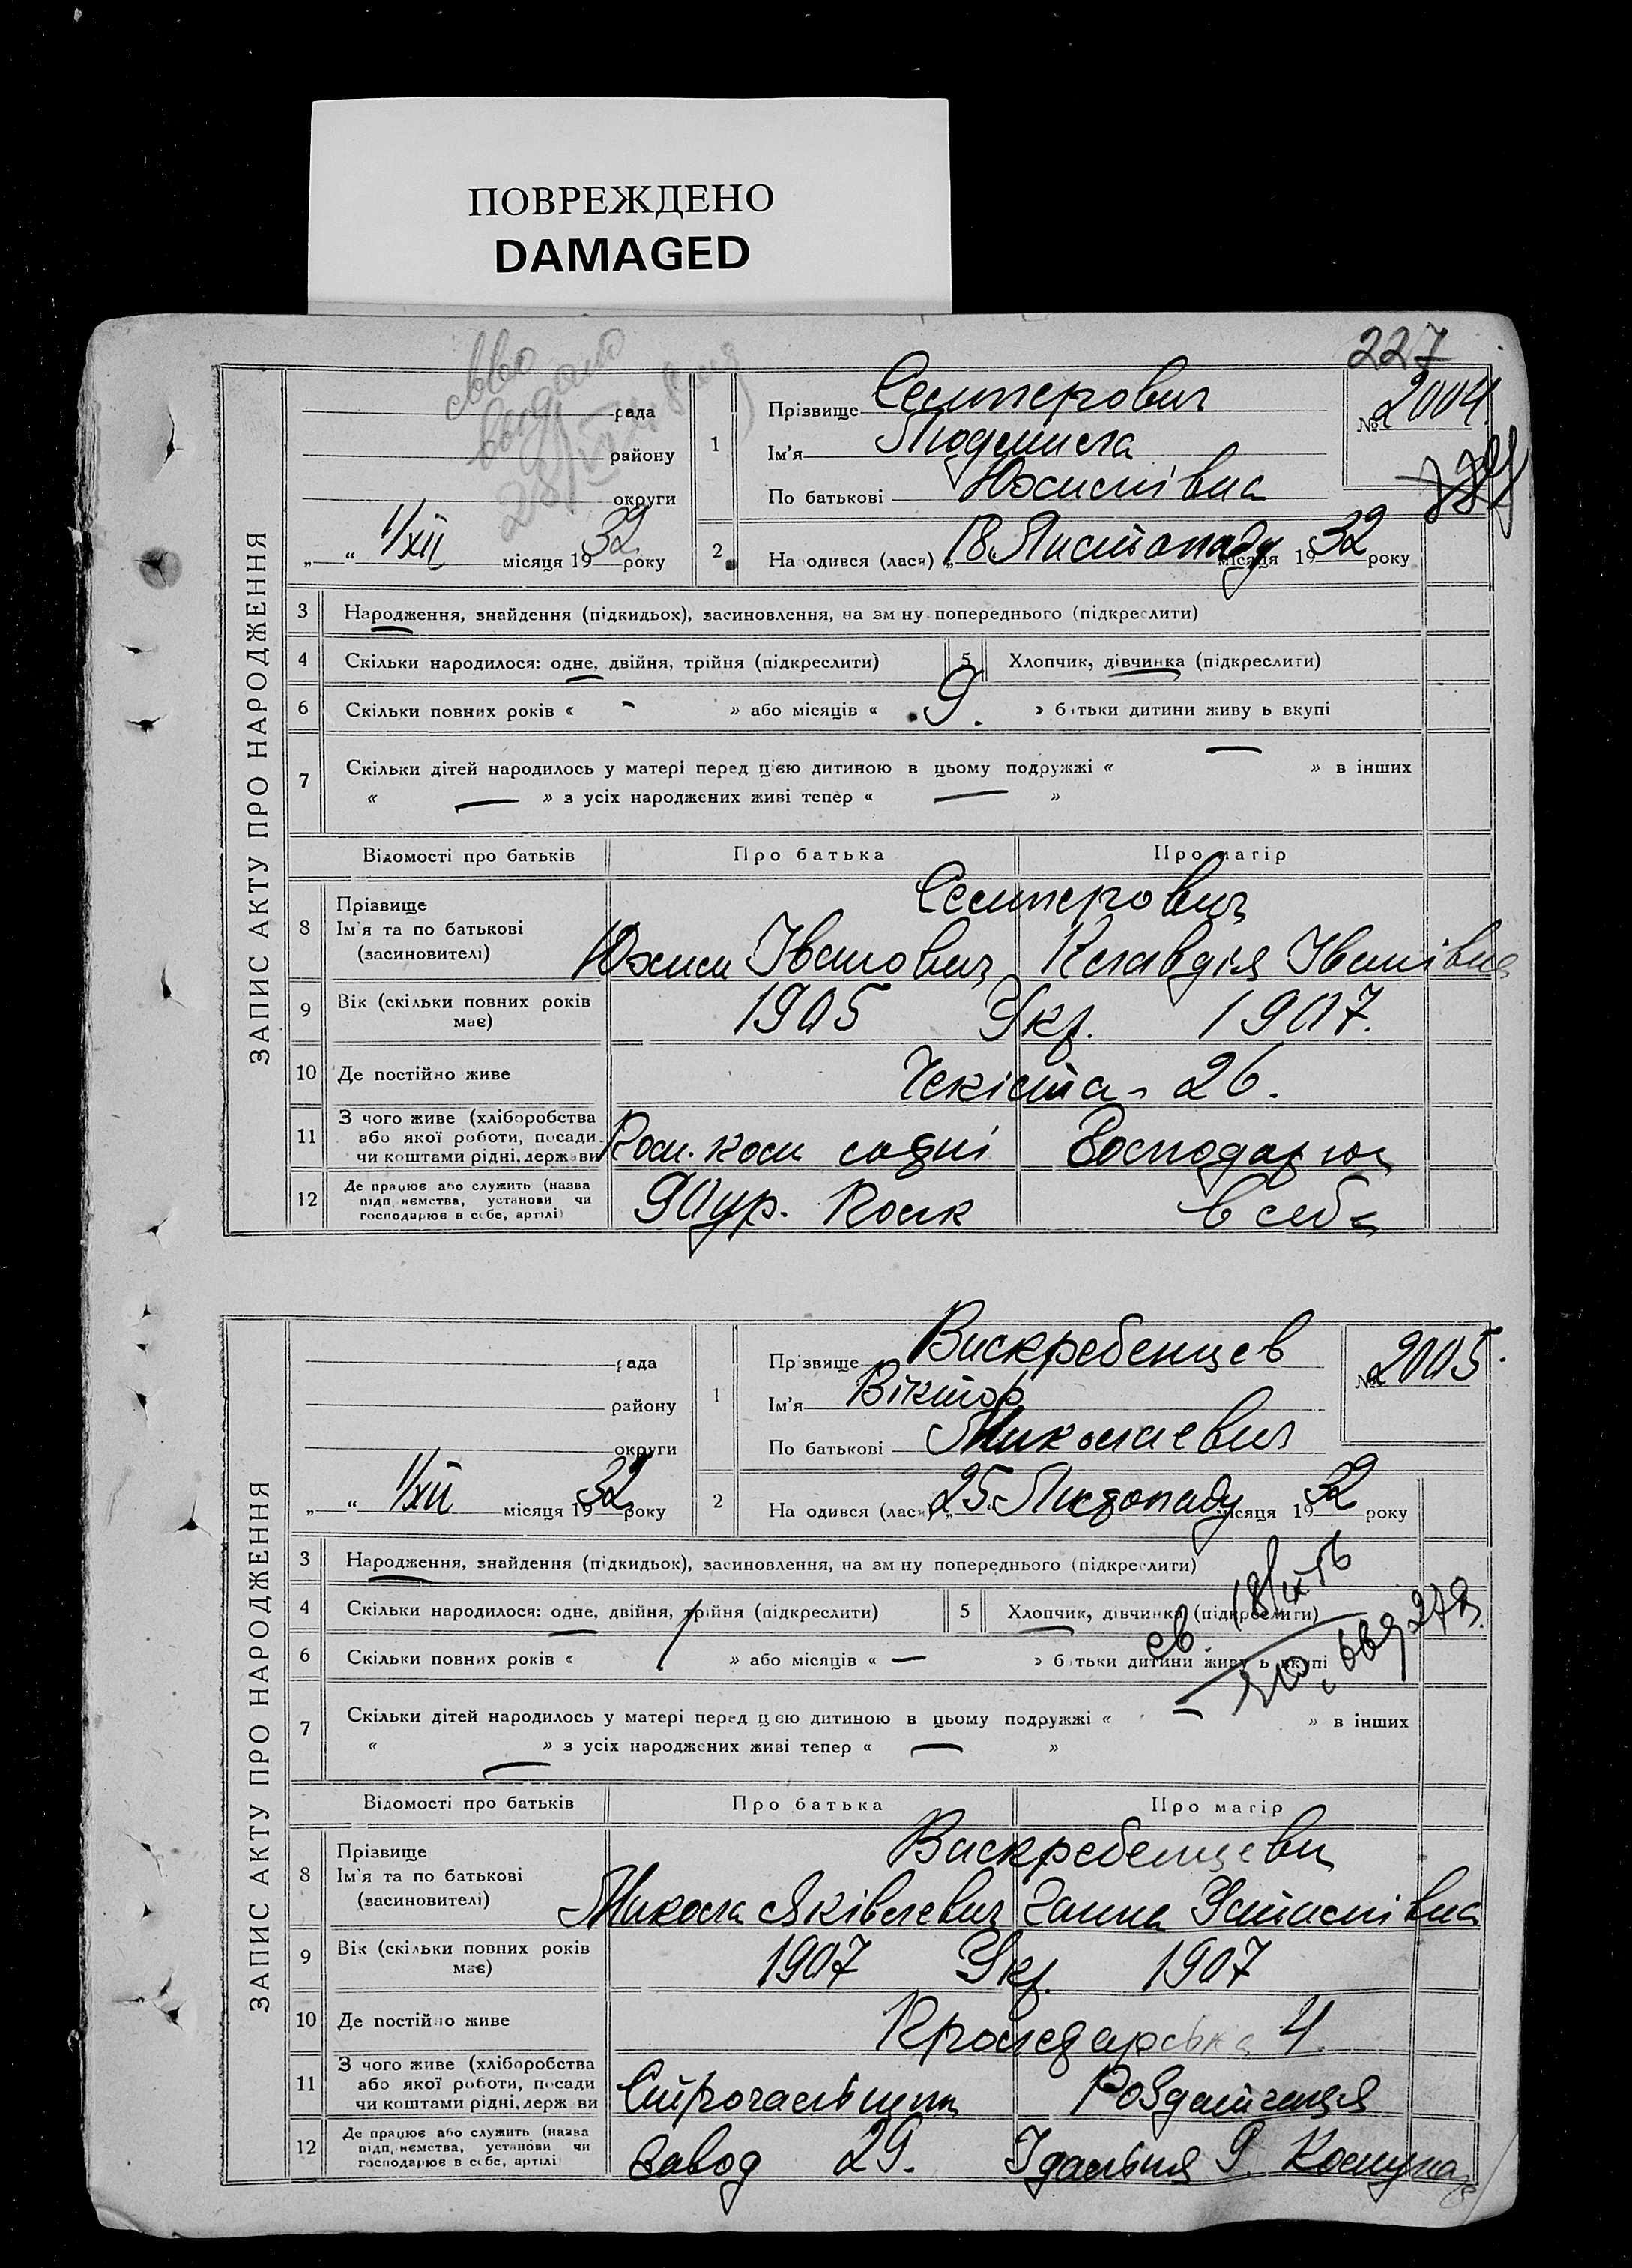 ПОВРЕЖДЕНО
DAMAGED
227
ЗАПИС АКТУ ПРО НАРОДЖЕННЯ
рада
району
округи
„ “ 1/XII місяця 1932 року
1
Прізвище
Ім'я Людмила
По батькові
№ 2004
2
На одився (лася) „18 Листопаду місяця 1932 року
3 Народження, знайдення (підкидьох), засиновлення, на зм ну попереднього (підкреслити)
4 Скільки народилося: одне, двійня, трійня (підкреслити) 5 Хлопчик, дівчинка (підкреслити)
6 Скільки повних років « - » або місяців « 9. » б тьки дитини живу ь вкупі
7 Скільки дітей народилось у матері перед цією дитиною в цьому подружжі « — » в інших
« — » з усіх народжених живі тепер « — »
Відомості про батьків Про батька Про матір
8 Прізвище
Ім'я та по батькові
(засиновителі)
Іванович Клавдія Іванівна
9 Вік (скільки повних років має) 1905 Укр. 1907.
10 Де постійно живе Чекіста - 26.
11 З чого живе (хліборобства
або якої роботи, посади
чи коштами рідні, держави
Пом. ком сотні
12 Де працює або служить (назва
підп иємства, установи чи
господарює в себе, артілі)
90 ур. Полк в себе
ЗАПИС АКТУ ПРО НАРОДЖЕННЯ
рада
району
округи
„ “ 1/XII місяця 1932 року
1
Пр звище Вискребенцев
Ім'я Віктор
По батькові Миколаевич
№ 2005.
2
На одився (лася) „25 Листопаду місяця 1932 року
3 Народження, знайдення (підкидьок), засиновлення, на зм ну попереднього (підкреслити)
4 Скільки народилося: одне, двійня, трійня (підкреслити) 5 Хлопчик, дівчинка (підкреслити)
6 Скільки повних років « / » або місяців « — » б тьки дитини живу ь вкупі
7 Скільки дітей народилось у матері перед цією дитиною в цьому подружжі « — » в інших
« — » з усіх народжених живі тепер « — »
Відомості про батьків Про батька Про матір
8 Прізвище
Ім'я та по батькові
(засиновителі)
Вискребенцеви
Микола Яківлевич Ганна Устимівна
9 Вік (скільки повних років має) 1907 Укр. 1907
10 Де постійно живе 4.
11 З чого живе (хліборобства
або якої роботи, посади
чи коштами рідні, держ ви
Роздатчиця
12 Де працює або служить (назва
підп иємства, установи чи
господарює в себе, артілі)
завод 29. Ідальня 9.